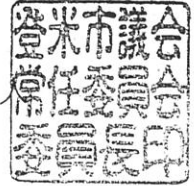 登米市議会
常任委員会
委員長印